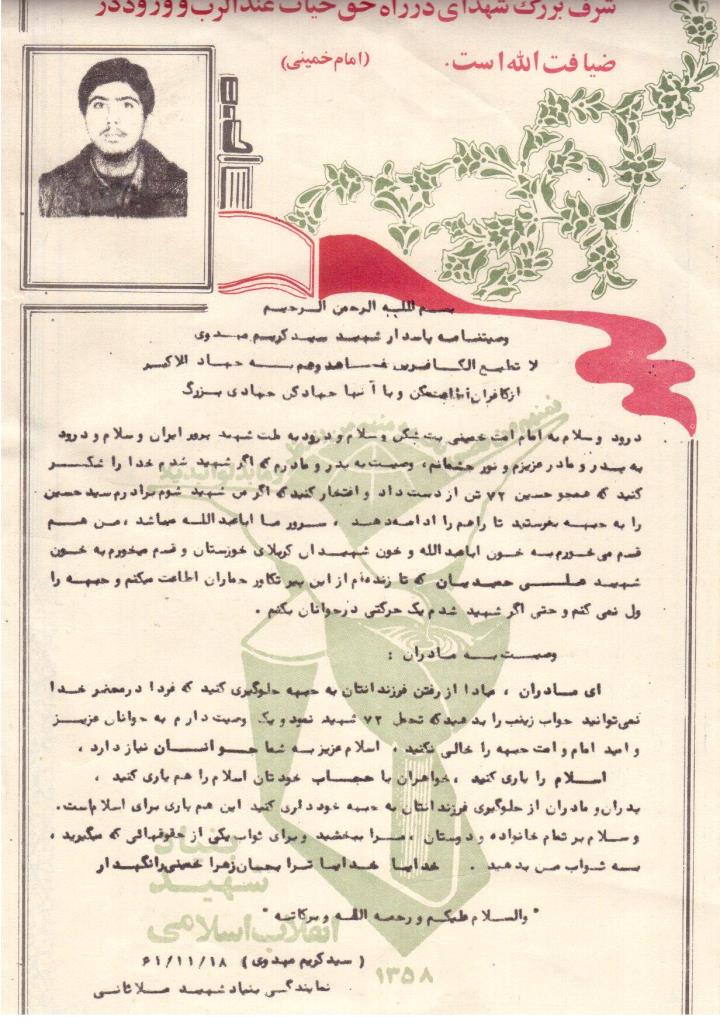 شرف بزرگ شهدای در راه حق حیات عندالرب و ورود در
ضیافت الله است. (امام خمینی)
بسم الله الرحمن الرحیم
وصیتنامه پاسدار شهید سید کریم مهدوی
لا تطیع الکافرین و جاهدهم به جهاد الاکبر
از کافران اطاعت مکن و با آنها جهاد کن جهادی بزرگ
درود و سلام به امام امت خمینی بت شکن و سلام و درود به ملت شهید پرور ایران و سلام و درود
به پدر و مادر عزیزم و نور چشمانم، وصیت به پدر و مادرم که اگر شهید شدم خدا را شکر
کنید که همچو حسین ۷۲ تن از دست داد و افتخار کنید که اگر من شهید شوم برادرم سید حسین
را به جبهه بفرستید تا راهم را ادامه دهد ، سرور ما اباعبدالله میباشد ، من هم
قسم می خورم به خون اباعبدالله و خون شهیدان کربلای خوزستان و قسم میخورم به خون
شهید علی حمیدیان که تا زنده‌ام از این پیر تکاور جماران اطاعت میکنم و جبهه را
ول نمی کنم و حتی اگر شهید شدم یک حرکتی در جوانان بکنم .
وصیت به مادران :
ای مادران ، مبادا از رفتن فرزندانتان به جبهه جلوگیری کنید که فردا در محضر خدا
نمی‌توانید جواب زینب را بدهید که تحمل ۷۲ شهید نمود و یک وصیت دارم به جوانان عزیز
و امید امام و امت جبهه را خالی نکنید ، اسلام عزیز به شما جوانان نیاز دارد ،
اسلام را یاری کنید ، خواهران با حجاب خودتان اسلام را هم یاری کنید ،
پدران و مادران از جلوگیری فرزندانتان به جبهه خودداری کنید این هم یاری برای اسلام است.
و سلام بر تمام خانواده و دوستان ، مرا ببخشید و برای ثواب یکی از حقوقهائی که میگیرید ،
به ثواب من بدهید . خدایا خدایا ترا بجان زهرا خمینی را نگهدار
" والسلام علیکم و رحمه الله و برکاته "
( سید کریم مهدوی ) ۶۱/۱۱/۱۸
نمایندگی بنیاد شهید ملاثانی
بنیاد
شهید
انقلاب اسلامی
۱۳۵۸